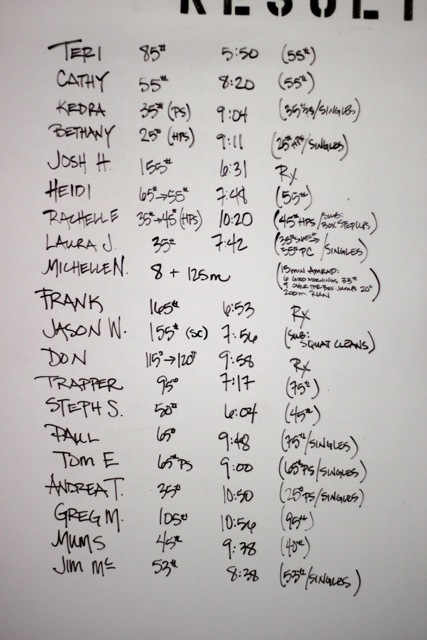 RESULT
TERI 85# 5:50 (55#)
CATHY 55# 8:20 (55#)
KEDRA 35# (PS) 9:04 (35#PS/SINGLES)
BETHANY 25# (HPS) 9:11 (25#HPS/SINGLES)
JOSH H. 155# 6:31 Rx
HEIDI 65#→55# 7:48 (55#)
RACHELLE 35#→45# (HPS) 10:20 (45#HPS/SUB: BOX STEP UPS)
LAURA J. 35# 7:42 (35# 55# PC /SINGLES)
MICHELLE N. 8 + 125m (15 MIN AMRAP:
6 GOOD MORNINGS 33#
9 OVER THE BOX JUMPS 20"
200m RUN)
FRANK 165# 6:53 Rx
JASON W. 155# (SC) 7:56 (SUB: SQUAT CLEANS)
DON 115#→120# 9:58 Rx
TRAPPER 95# 7:17 (75#)
STEPH S. 50# 6:04 (45#)
PAUL 65# 9:48 (75#/SINGLES)
TOM E 65# PS 9:00 (65#PS/SINGLES)
ANDREA T. 35# 10:50 (25#PS/SINGLES)
GREG M. 105# 10:56 (95#)
MUMS 45# 9:38 (40#)
JIM Mc 53# 8:38 (53#/SINGLES)